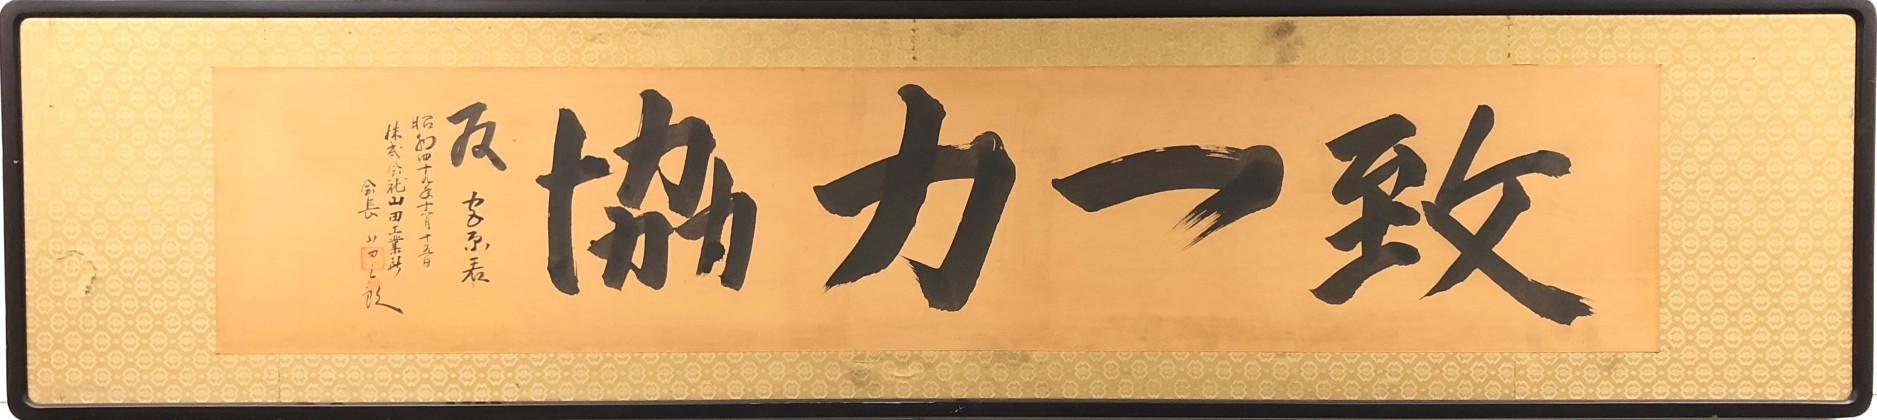 協力一致
昭和四十九年十一月十五日
株式会社山田工業所
会長 山田